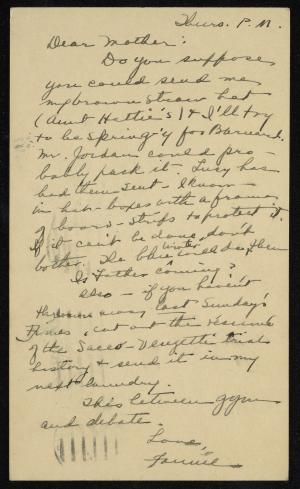 Thurs. P.M.
Dear Mother:
Do you suppose
you could send me
my brown straw hat
(Aunt Hattie's) & I'll try
to be spring'y for Barnard.
Mr. Jordan could pro-
bably pack it - Lucy has
had them sent I know -
in hat-boxes with a frame
of board-strips to protect it.
If it can't be done, don't
bother. The blue winter will do, then
Is Father coming?
Also - if you haven't
thrown away last Sunday's
Times, cut out the résumé
of the Sacco-Vanzetti trial
history & send it in my
next laundry.
This between gym
and debate.
Love,
Fannie